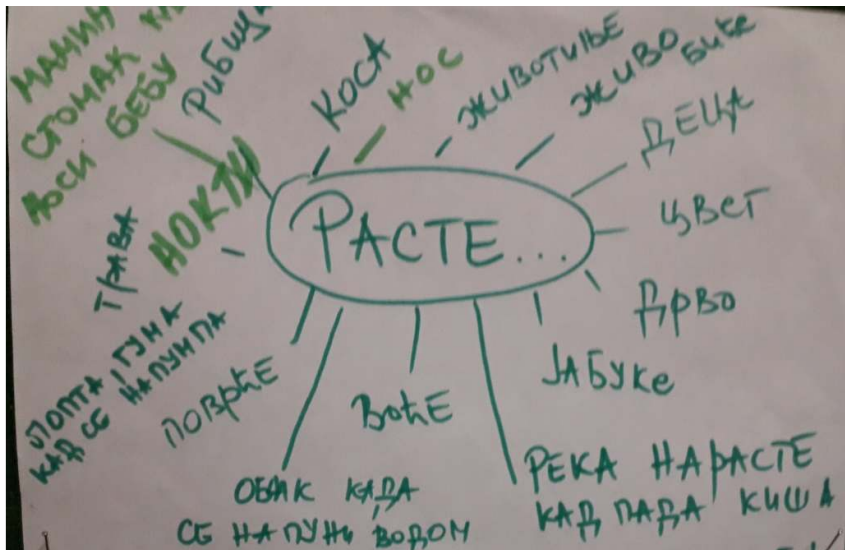 МАМИН
СТОМАК
НОСИ БЕБУ
КОСА
НОС
ЖИВОТИЊЕ
ЖИВО
БИЋЕ
ДЕЦА
ЦВЕТ
ДРВО
ЈАБУКЕ
РЕКА НАРАСТЕ
КАД ПАДА КИША
ВОЋЕ
ОБЛАК КАДА
СЕ НАПУНИ ВОДОМ
ПОВРЋЕ
ЛОПТА, ГУМА
КАД СЕ НАПУМПА
ТРАВА
НОКТИ
РАСТЕ...